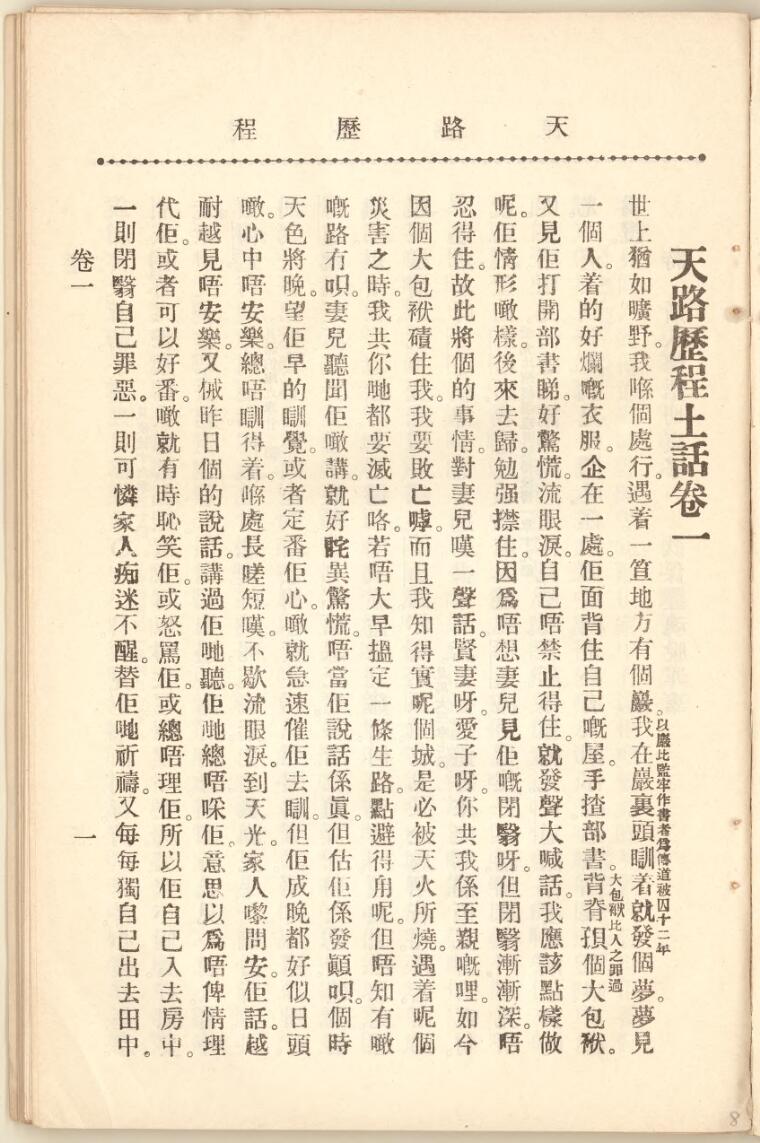 天路歷程
天路歷程土話卷一
世上猶如曠野。我喺個處行。遇着一笪地方有個巖。我在巖裏頭瞓着就發個夢。夢見
以巖比監牢作書者爲傳道被囚十二年
一個人。着的好爛嘅衣服。企在一處。佢面背住自己嘅屋。手揸部書。背脊孭個大包袱。
大包袱比人之罪過
又見佢打開部書睇。好驚慌。流眼淚。自己唔禁止得住。就發聲大喊話。我應該點樣做
呢。佢情形噉樣。後來去歸。勉强㩒住。因爲唔想妻兒見佢嘅閉翳呀。但閉翳漸漸深。唔
忍得住。故此將個的事情。對妻兒嘆一聲話。賢妻呀。愛子呀。你共我係至親嘅哩。如今
因個大包袱磧住我。我要敗亡嘑。而且我知得實呢個城。是必被天火所燒。遇着呢個
災害之時。我共你哋都要滅亡咯。若唔大早搵定一條生路。點避得甪呢。但唔知有噉
嘅路冇唄。妻兒聽聞佢噉講。就好詫異驚慌。唔當佢說話係眞。但估佢係發顚唄。個時
天色將晚。望佢早的瞓覺。或者定番佢心。噉就急速催佢去瞓。但佢成晚都好似日頭
噉。心中唔安樂。總唔瞓得着。喺處長嗟短嘆。不歇流眼淚。到天光。家人嚟問安。佢話。越
耐越見唔安樂。又椷昨日個的說話。講過佢哋聽。佢哋總唔啋佢。意思以爲唔俾情理
代佢。或者可以好番。噉就有時恥笑佢。或怒罵佢。或總唔理佢。所以佢自己入去房中。
一則閉翳自己罪惡。一則可憐家人痴迷不醒。替佢哋祈禱。又每每獨自己出去田中。
卷一
一
8